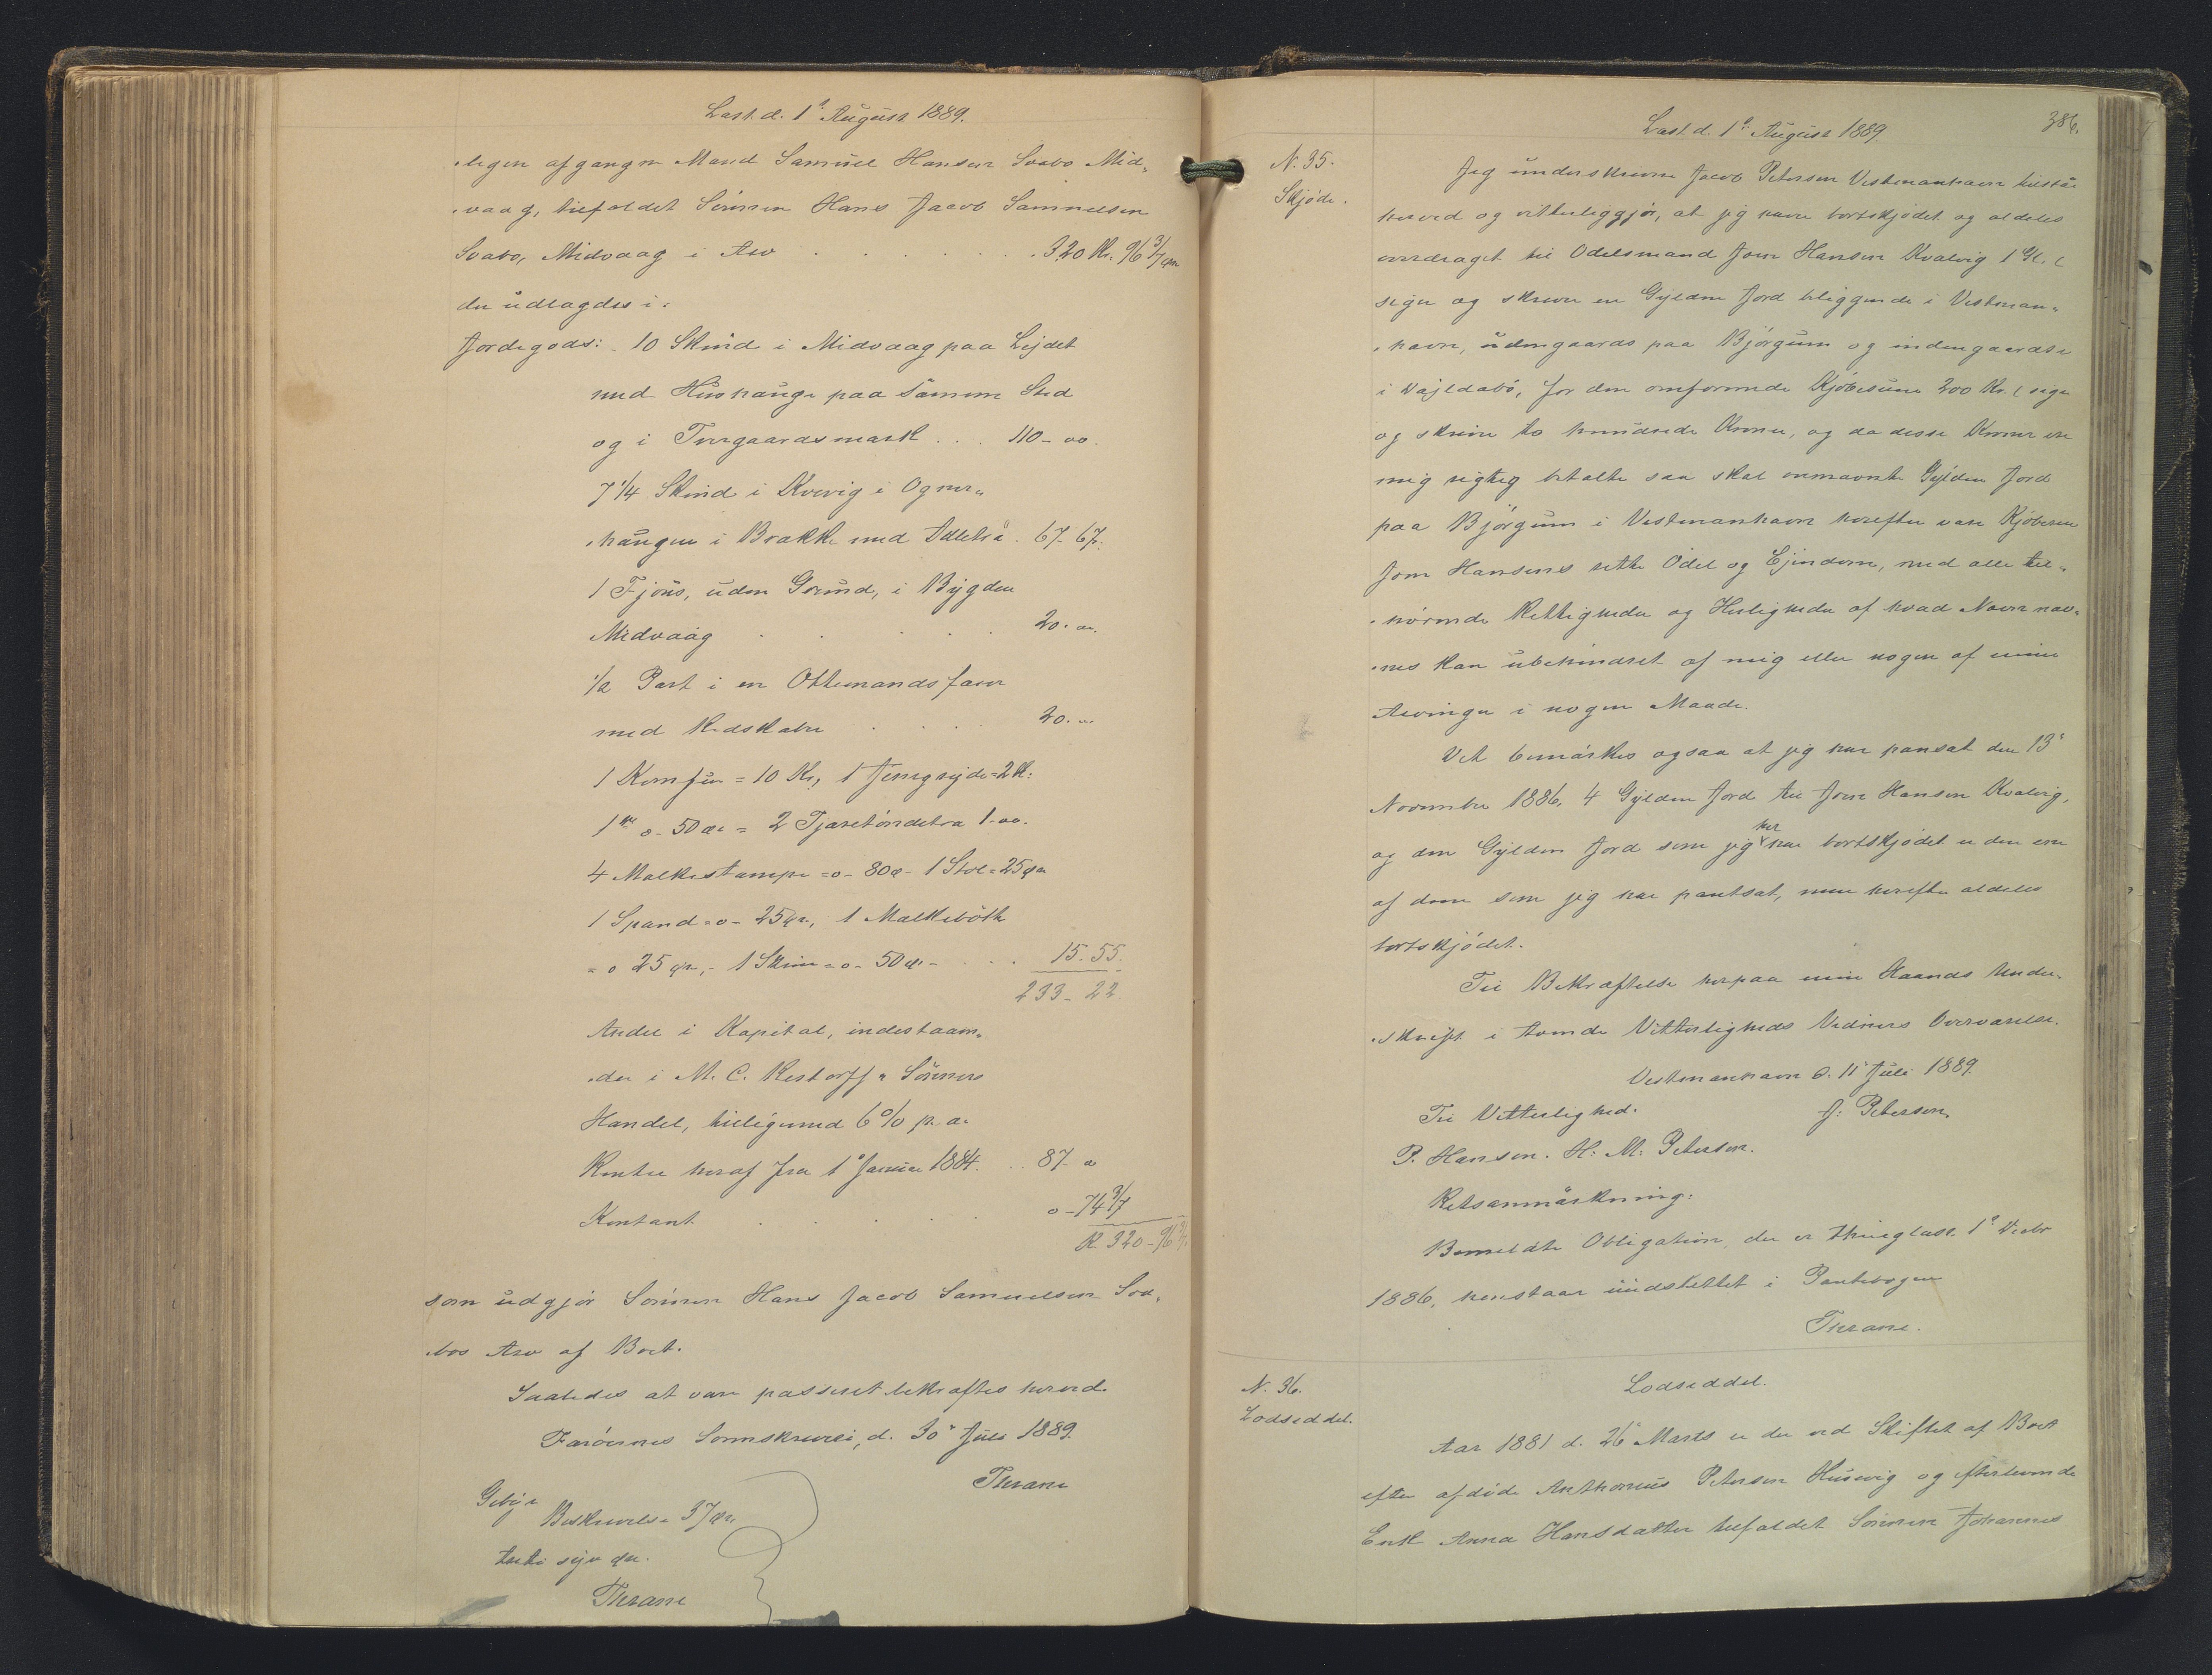 Læst d. 1ª August 1889.
-ligen afgangne Mand Samuel Hansen Svabo Mid-
-vaag, tilfaldet Sönnen Hans Jacob Samuelsen
Svabo, Midvaag i Arv . . . . . . . 320 Kr. 96 3/7 Øre
der udlagdes i:
Jordegods: 10 Skind i Midvaag paa Lejdet
med Hushauge paa samme Sted
og i Tvergaardsmark . . . 110 - 00.
7 1/4 Skind i Kvivig i Ogner-
-haugen i Brække med Adletra . 67 - 67.
1 Fjøs, uden Grund, i Bygden
Midvaag . . . . . 20. 00.
1/2 Part i en Ottemandsfarer
med Redskaber . . . . 20. 00
1 Komfur = 10 Kr, 1 Jerngryde = 2 K:
1 o - 50 ør = 2 Tjæretöndetra 1.00.
4 Malkestampe = 0 - 80 ø - 1 Stol = 25 øre
1 Spand = 0 - 25 ør, 1 Malkebötte
= 0 25 ør, - 1 Skrin = 0 - 50 ø - . . . 15. 55.
233 - 22
Andel i Kapital, indestaaen-
-de i M. C. Restorff & Sönners
Handel, tilligemed 6 % p. a.
Renter heraf fra 1ª Januar 1884. . . 87 - 0
Kontant . . . . . 0 - 74 3/7
K. 320 - 96 3/7
som udgjör Sönnen Hans Jacob Samuelsen Sva-
-bos Arv af Boet.
Saaledes at være passeret bekræftes herved.
Færöernes Sorenskriveri, d. 30ª Juli 1889.
Thrane
Gebyr
Beskrivelse 37 Øre
tretti syv Øre.
Thrane
386.
Læst d. 1ª August 1889.
N. 35.
Skjöde.
Jeg underskrevne Jacob Petersen Vestmanhavn tilstår
herved og vitterliggjör, at jeg haver bortskjödet og aldeles
overdraget til Odelsmand Joen Hansen Kvalvig 1 Gl. (
siger og skriver en Gylden Jord beliggende i Vestman-
-havn, udengaards paa Björgum og indengaards
i Vajldabö, for den omforenede Kjöbesum 200 Kr. ( siger
og skriver to hundrede Kroner, og da disse Kroner ere
mig rigtig betalte saa skal ommævnte Gylden Jord
paa Björgum i Vestmanhavn herefter være Kjöberen
Joen Hansens rette Odel og Ejendom, med alle til-
-hörende Rettigheder og Herligheder af hvad Navn næv-
-nes kan ubehindret af mig eller nogen af mine
Arvinger i nogen Maade.
Det bemärkes ogsaa at jeg har pansat den 13ª
November 1886, 4 Gylden Jord til Joen Hansen Kvalvig,
og den Gylden Jord som jeg her har bortskjödet er den ene
af dem som jeg har pantsat, men herefter aldeles
bortskjödet.
Til Bekræftelse herpaa min Haands Under-
-skrift i tvende Vitterligheds Vidners Overværelse.
Vestmanhavn d. 11 Juli 1889.
Til Vitterlighed. J. Petersen,
P. Hansen. H. M. Petersen.
Retsanmärkning:
Bemeldte Obligation, der er thinglæst 1ª Decbr
1886, henstaar uudslettet i Pantebogen
Thrane.
N. 36.
Lodseddel.
Lodseddel.
Aar 1881 d. 26 Marts er der ved Skiftet af Boet
efter afdöde Anthonius Petersen Husevig og efterlevende
Enke Anna Hansdatter tilfaldet Sönnen Johannes